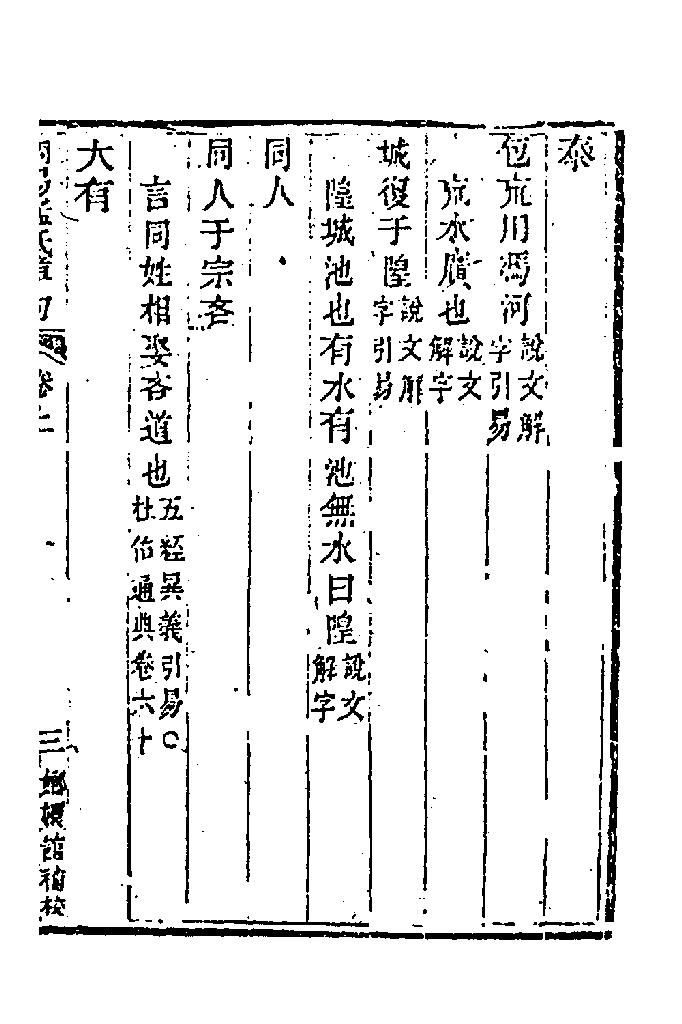 泰
包巟用馮河說文解字引易
巟水廣也說文解字
城復于隍說文解字引易
隍城池也有水有池無水曰隍說文解字
同人
同人于宗吝
言同姓相娶吝道也五經異義引易○杜佑通典卷六十
大有
周易孟氏章句 卷上 三 嫏嬛館補校